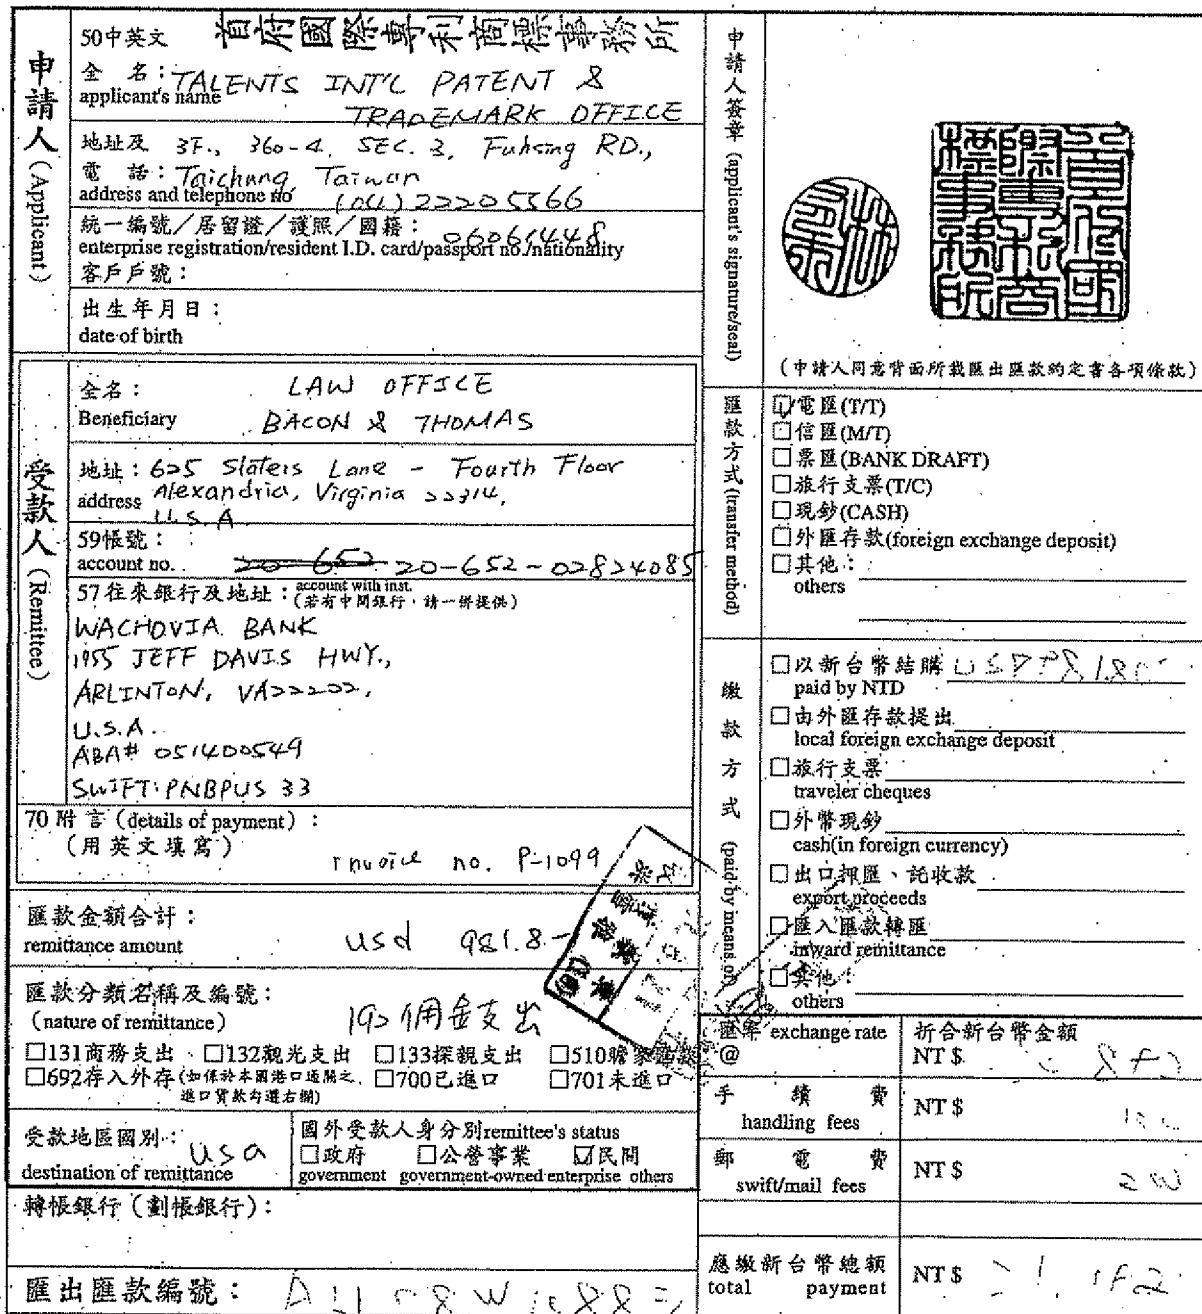 申請人 (Applicant)
50中英文 首府國際專利商標事務所
全 名：TALENTS INT'L PATENT &
applicant's name TRADEMARK OFFICE
地址及 3F., 360-4, SEC. 3, Fuhsing RD.,
電 話：Taichung Taiwan
address and telephone no (04) 22205566
統一編號／居留證／護照／國籍：06061448
enterprise registration/resident I.D. card/passport no./nationality
客戶戶號：
出生年月日：
date of birth
申請人簽章 (applicant's signature/seal)
(申請人同意背面所載匯出匯款約定書各項條款)
受款人 (Remittee)
全名： LAW OFFICE
Beneficiary BACON & THOMAS
地址：625 Slaters Lane - Fourth Floor
address Alexandria, Virginia 22314,
U.S.A
59帳號：
account no. 20-652-02824085
57往來銀行及地址：account with inst.
(若有中間銀行，請一併提供)
WACHOVIA BANK
1955 JEFF DAVIS HWY.,
ARLINTON, VA22202,
U.S.A.
ABA# 051400549
SWIFT: PNBPUS 33
70附言 (details of payment)：
(用英文填寫)
Invoice no. P-1099
匯款金額合計：
remittance amount usd 981.8-
匯款分類名稱及編號：
(nature of remittance) 192佣金支出
□131商務支出 □132觀光支出 □133探親支出 □510贍家匯款
□692存入外存(如係於本國港口通關之 □700已進口 □701未進口
進口貨款勾選右欄)
受款地區國別：usa
destination of remittance
國外受款人身分別remittee's status
□政府 □公營事業 ☑民間
government government-owned enterprise others
轉帳銀行（劃帳銀行）：
匯出匯款編號：
匯款方式 (transfer method)
☑電匯(T/T)
□信匯(M/T)
□票匯(BANK DRAFT)
□旅行支票(T/C)
□現鈔(CASH)
□外匯存款(foreign exchange deposit)
□其他：
others
繳款方式 (paid by means of)
□以新台幣結購
paid by NTD
□由外匯存款提出
local foreign exchange deposit
□旅行支票
traveler cheques
□外幣現鈔
cash(in foreign currency)
□出口押匯、託收款
export proceeds
□匯入匯款轉匯
inward remittance
□其他：
others
匯率 exchange rate
@
折合新台幣金額
NT $
手 續 費
handling fees
NT $
郵 電 費
swift/mail fees
NT $
應繳新台幣總額
total payment
NT $